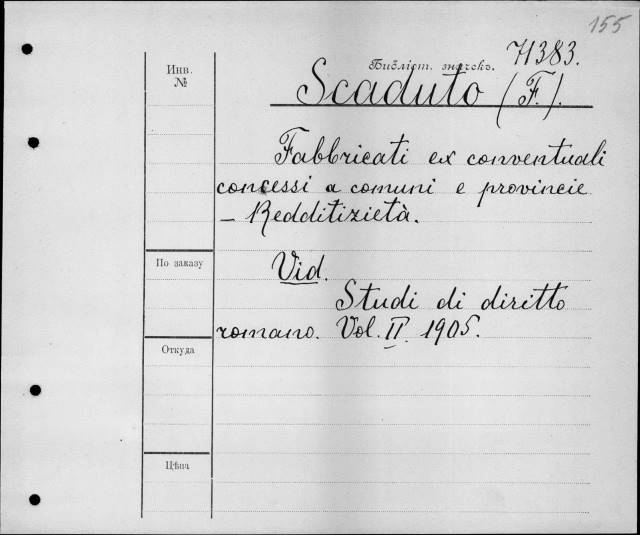 155
71383.
Инв.
№
Библіот. значекъ.
Scaduto (F.).
Fabbricati ex conventuali
concessi a comuni e provincie
– Redditizietà.
По заказу
Vid.
Studi di diritto
romano. Vol. II. 1905.
Откуда
Цѣна